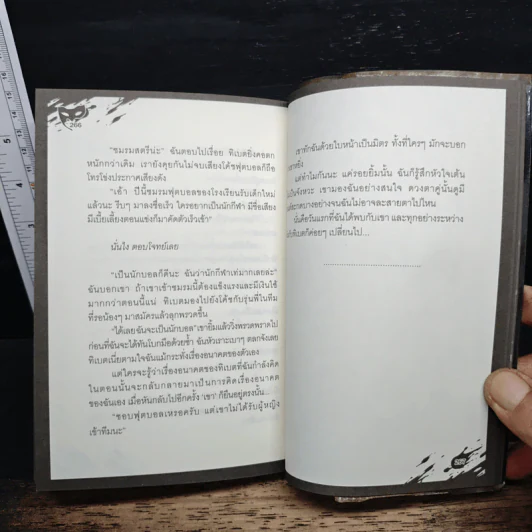 266
"ชมรมสตรีน่ะ" ฉันตอบไปเรื่อย ทิเบตยิ่งคอตก
หนักกว่าเดิม เรายังคุยกันไม่จบเสียงโค้ชฟุตบอลก็ถือ
โทรโข่งประกาศเสียงดัง
"เอ้า ปีนี้ชมรมฟุตบอลของโรงเรียนรับเด็กใหม่
แล้วนะ รีบๆ มาลงชื่อเร็ว ใครอยากเป็นนักกีฬา มีชื่อเสียง
มีเบี้ยเลี้ยงตอนแข่งก็มาคัดตัวเร็วเข้า"
นั่นไง ตอบโจทย์เลย
"เป็นนักบอลก็ดีนะ ฉันว่านักกีฬาเท่มากเลยล่ะ"
ฉันบอกเขา ถ้าเขาเข้าชมรมนี้ต้องแข็งแรงและมีเงินใช้
มากกว่าตอนนี้แน่ ทิเบตมองไปยังโค้ชกับรุ่นพี่ในทีม
ที่รอน้องๆ มาสมัครแล้วลุกพรวดขึ้น
"ได้เลยฉันจะเป็นนักบอล" เขายิ้มแล้ววิ่งพรวดพราดไป
ก่อนที่ฉันจะได้ทันโบกมือด้วยซ้ำ ฉันหัวเราะเบาๆ ตลกจังเลย
ทิเบตเนี่ยตามใจฉันแม้กระทั่งเรื่องอนาคตของตัวเอง
แต่ใครจะรู้ว่าเรื่องอนาคตของทิเบตที่ฉันกำลังคิด
ในตอนนั้นจะกลับกลายมาเป็นการคิดเรื่องอนาคต
ของฉันเอง เมื่อหันกลับไปอีกครั้ง 'เขา' ก็ยืนอยู่ตรงนั้น...
"ชอบฟุตบอลเหรอครับ แต่เขาไม่ได้รับผู้หญิง
เข้าทีมนะ"
เขาทักฉันด้วยใบหน้าเป็นมิตร ทั้งที่ใครๆ มักจะบอก
แต่ทำไมกันนะ แค่รอยยิ้มนั้น ฉันก็รู้สึกหัวใจเต้น
เขามองฉันอย่างสนใจ ดวงตาคู่นั้นดูมี
บางอย่างจนฉันไม่อาจละสายตาไปไหน
นั่นคือวันแรกที่ฉันได้พบกับเขา และทุกอย่างระหว่าง
ทิเบตก็ค่อยๆ เปลี่ยนไป...